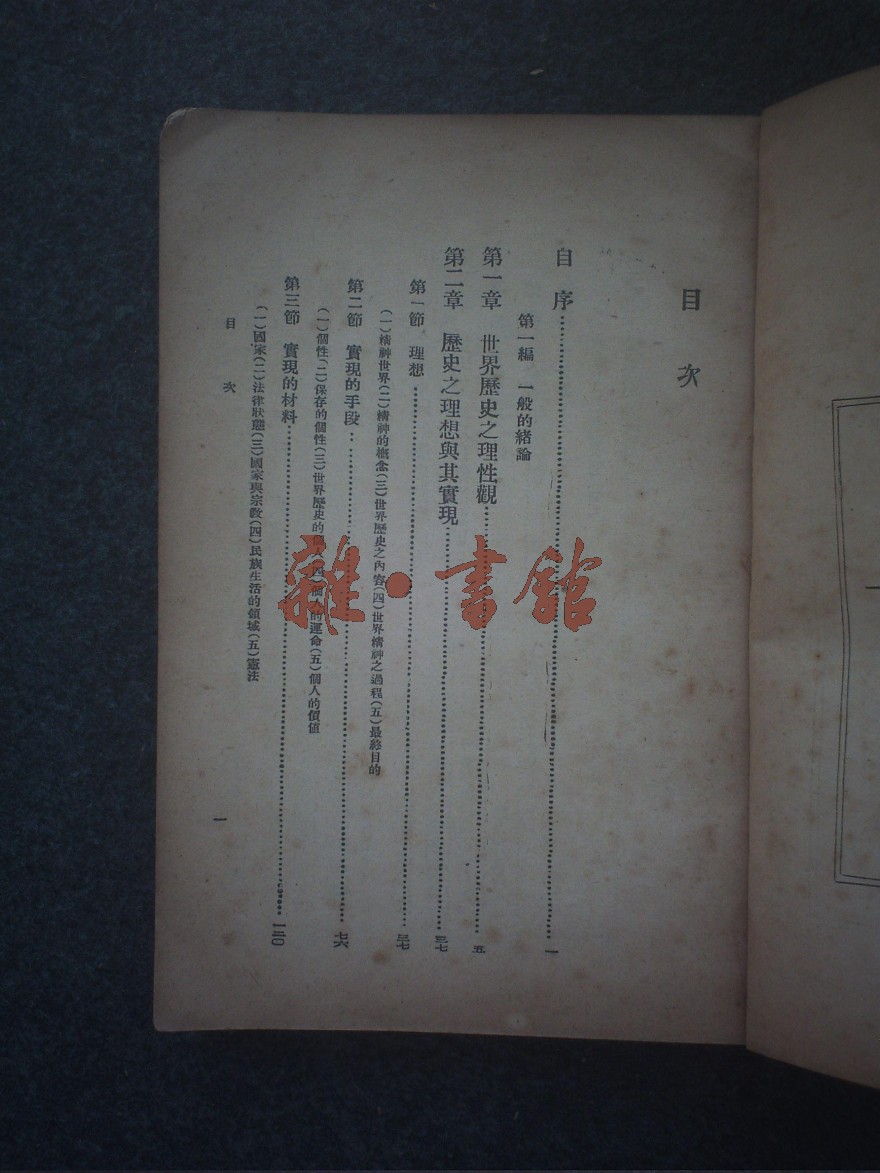 目次
自序……一
第一編 一般的緒論
第一章 世界歷史之理性觀……五
第二章 歷史之理想與其實現……三七
第一節 理想……三七
(一)精神世界(二)精神的概念(三)世界歷史之內容(四)世界精神之過程(五)最終目的
第二節 實現的手段……七六
(一)個性(二)保存的個性(三)世界歷史的個人(四)個人的運命(五)個人的價値
第三節 實現的材料……一二〇
(一)國家(二)法律狀態(三)國家與宗教(四)民族生活的領域(五)憲法
目次
一
雜·書館